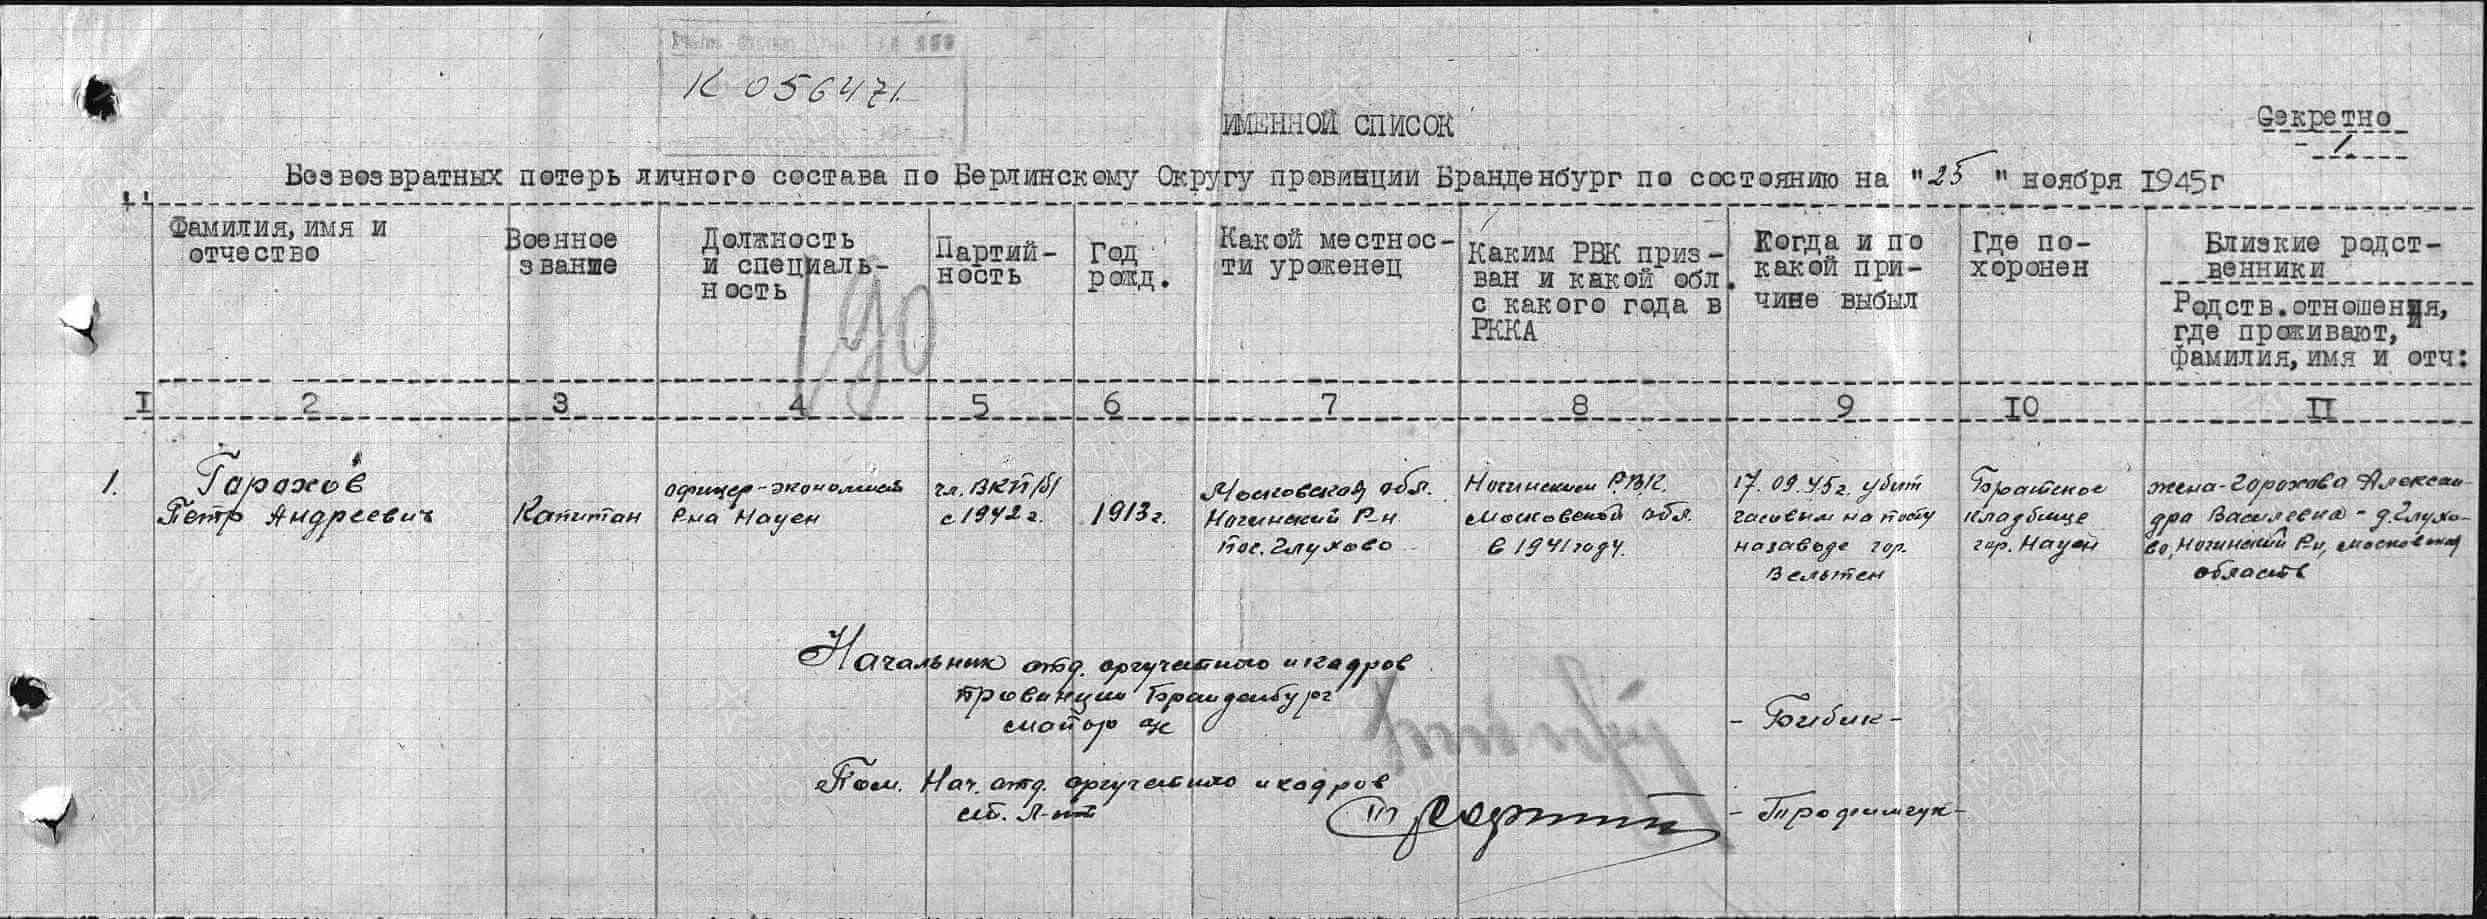 К 056471.
ИМЕННОЙ СПИСОК
Секретно
1.
Безвозвратных потерь личного состава по Берлинскому Округу провинции Бранденбург по состоянию на "25" ноября 1945г
Фамилия, имя и
отчество
Военное
звание
Должность
и специаль-
ность
Партий-
ность
Год
рожд.
Какой местнос-
ти уроженец
Каким РВК приз-
ван и какой обл.
с какого года в
РККА
Когда и по
какой при-
чине выбыл
Где по-
хоронен
Близкие родст-
венники
Родств. отношения,
и
где проживают,
фамилия, имя и отч:
190
I 2 3 4 5 6 7 8 9 10 II
1.
Гарохов
Петр Андреевич
Капитан
офицер-экономист
р-на Науен
чл. ВКП/б/
с 1942 г.
1913 г.
Московской обл.
Ногинский р-н
пос. Глухово
Ногинским Р.В.К.
Московской обл.
в 1941 году.
17.09.45г. убит
часовым на посту
на заводе гор.
Вельтен
Братское
кладбище
гор. Науен
жена - Горохова Алексан-
дра Василевна - д. Глухо-
во, Ногинский р-н, московская
область
Начальник отд. оргучетного и кадров
провинции Бранденбург
майор а/с
- Бибик -
Пом. Нач. отд. оргучетного и кадров
ст. л-нт
- Трофимчук -